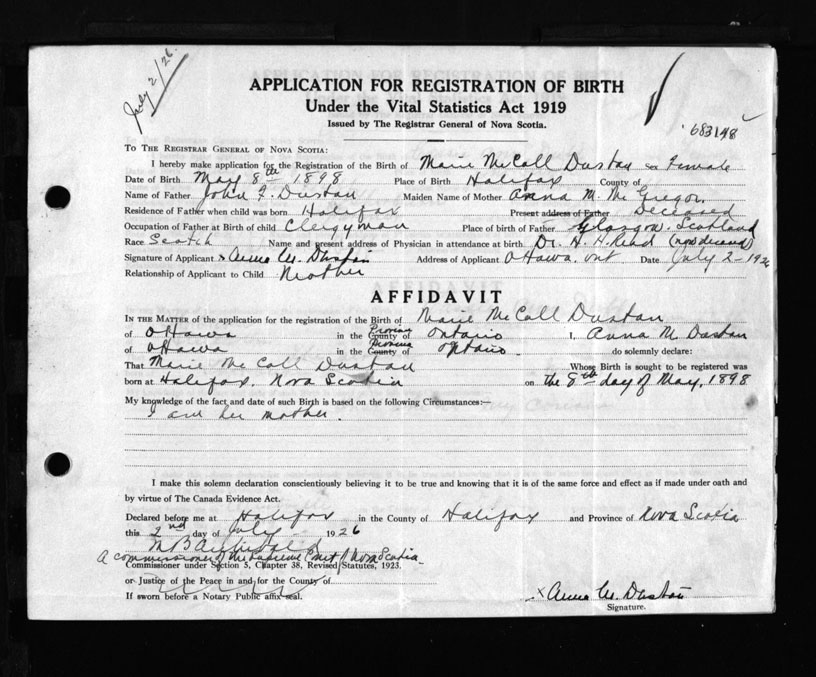 July 2/26.
APPLICATION FOR REGISTRATION OF BIRTH
Under the Vital Statistics Act 1919
Issued by The Registrar General of Nova Scotia.
683148
TO THE REGISTRAR GENERAL OF NOVA SCOTIA:
I hereby make application for the Registration of the Birth of Marie McCall Dustan Female
Date of Birth May 8th 1898 Place of Birth Halifax County of
Name of Father John F. Dustan Maiden Name of Mother Anna M. McGregor
Residence of Father when child was born Halifax Present address of Father Deceased
Occupation of Father at Birth of child Clergyman Place of birth of Father Glasgow, Scotland
Race Scotch Name and present address of Physician in attendance at birth Dr. H. H. Read (now deceased)
Signature of Applicant x Anna M. Dustan Address of Applicant Ottawa, Ont Date July 2 - 1926
Relationship of Applicant to Child Mother
AFFIDAVIT
IN THE MATTER of the application for the registration of the Birth of Marie McCall Dustan
of Ottawa in the County of Ontario I, Anna M. Dustan
of Ottawa in the County of Ontario do solemnly declare:
That Marie McCall Dustan Whose Birth is sought to be registered was
born at Halifax, Nova Scotia on the 8th day of May, 1898
My knowledge of the fact and date of such Birth is based on the following Circumstances:—
I am her mother.
I make this solemn declaration conscientiously believing it to be true and knowing that it is of the same force and effect as if made under oath and
by virtue of The Canada Evidence Act.
Declared before me at Halifax in the County of Halifax and Province of Nova Scotia
this 2nd day of July 1926
A commissioner of the Supreme Court of Nova Scotia
Commissioner under Section 5, Chapter 38, Revised Statutes, 1923.
or Justice of the Peace in and for the County of
If sworn before a Notary Public affix seal.
x Anna M. Dustan
Signature.